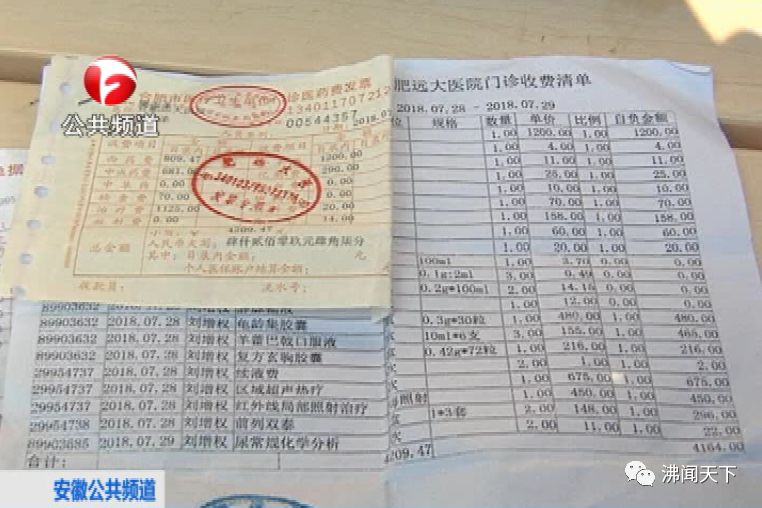 公共频道
诊医药费发票
134011707212
0054435
2018.07
收费项目
收费项目
西药费 809.47 1200.00
中成药费 681.0 290.00
中草药 0.00 0.00
检查费 70.00 20.00
治疗费 1125.00 14.00
0.00
4209.47
总金额
人民币大写：肆仟贰佰零玖元肆角柒分
其中：目录内金额： 元
个人医保账户结算金额：
收款员： 流水号：
肥远大医院门诊收费清单
2018.07.28 - 2018.07.29
位 规格 数量 单价 比例 自负金额
1.00 1200.00 1.00 1200.00
1.00 4.00 1.00 4.00
1.00 11.00 1.00 11.00
1.00 25.00 1.00 25.00
1.00 10.00 1.00 10.00
1.00 70.00 1.00 70.00
1.00 158.00 1.00 158.00
1.00 60.00 1.00 60.00
1.00 20.00 1.00 20.00
100ml 1.00 3.70 0.00
0.1g:2ml 3.00 0.49 0.00
0.2g*100ml 2.00 14.15 0.00
1.00 12.00 0.00
0.3g*30粒 1.00 480.00 1.00 480.00
89903632 2018.07.28 刘增权 龟龄集胶囊 10ml*6支 3.00 155.00 1.00 465.00
89903632 2018.07.28 刘增权 羊藿巴戟口服液 0.42g*72粒 1.00 216.00 1.00 216.00
89903632 2018.07.28 刘增权 复方玄驹胶囊 2.00 1.00 1.00 2.00
29954737 2018.07.28 刘增权 续液费 1.00 675.00 1.00 675.00
29954737 2018.07.28 刘增权 区域超声热疗 1.00 450.00 1.00 450.00
29954737 2018.07.28 刘增权 红外线局部照射治疗 照射 1*3套 2.00 148.00 1.00 296.00
29954738 2018.07.28 刘增权 前列双泰 2.00 11.00 1.00 22.00
89903685 2018.07.29 刘增权 尿常规化学分析
合计： 4209.47 4164.00
安徽公共频道
沸闻天下